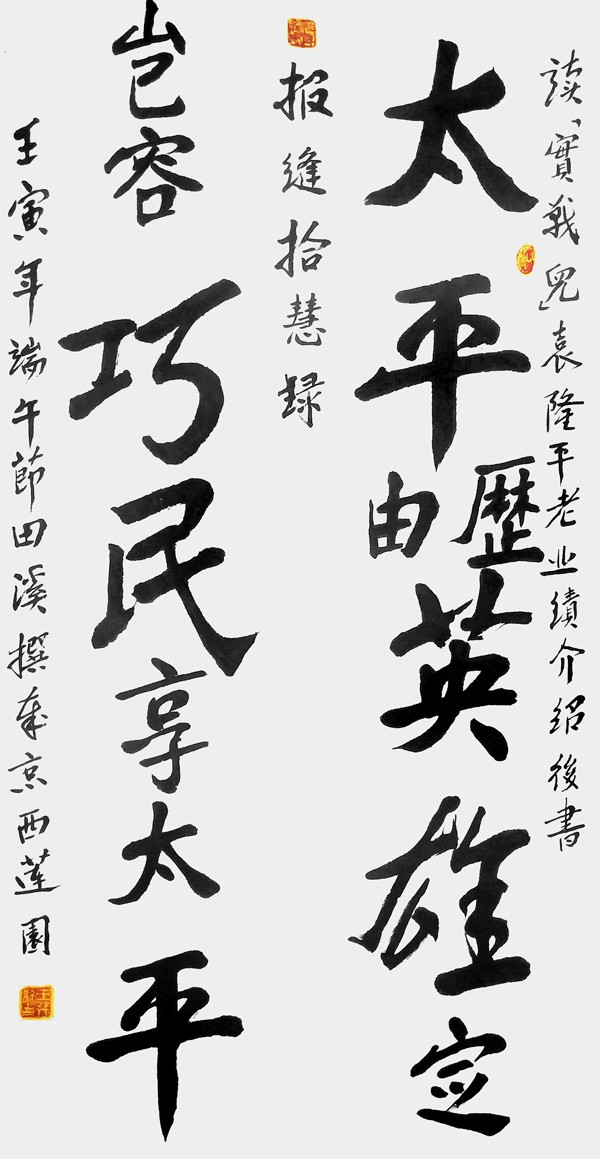 读「實戰兒」袁隆平老业績介绍後書
太平歷由英雄定
报缝拾慧録
岂容巧民享太平
壬寅年端午節田溪撰京西蓮園